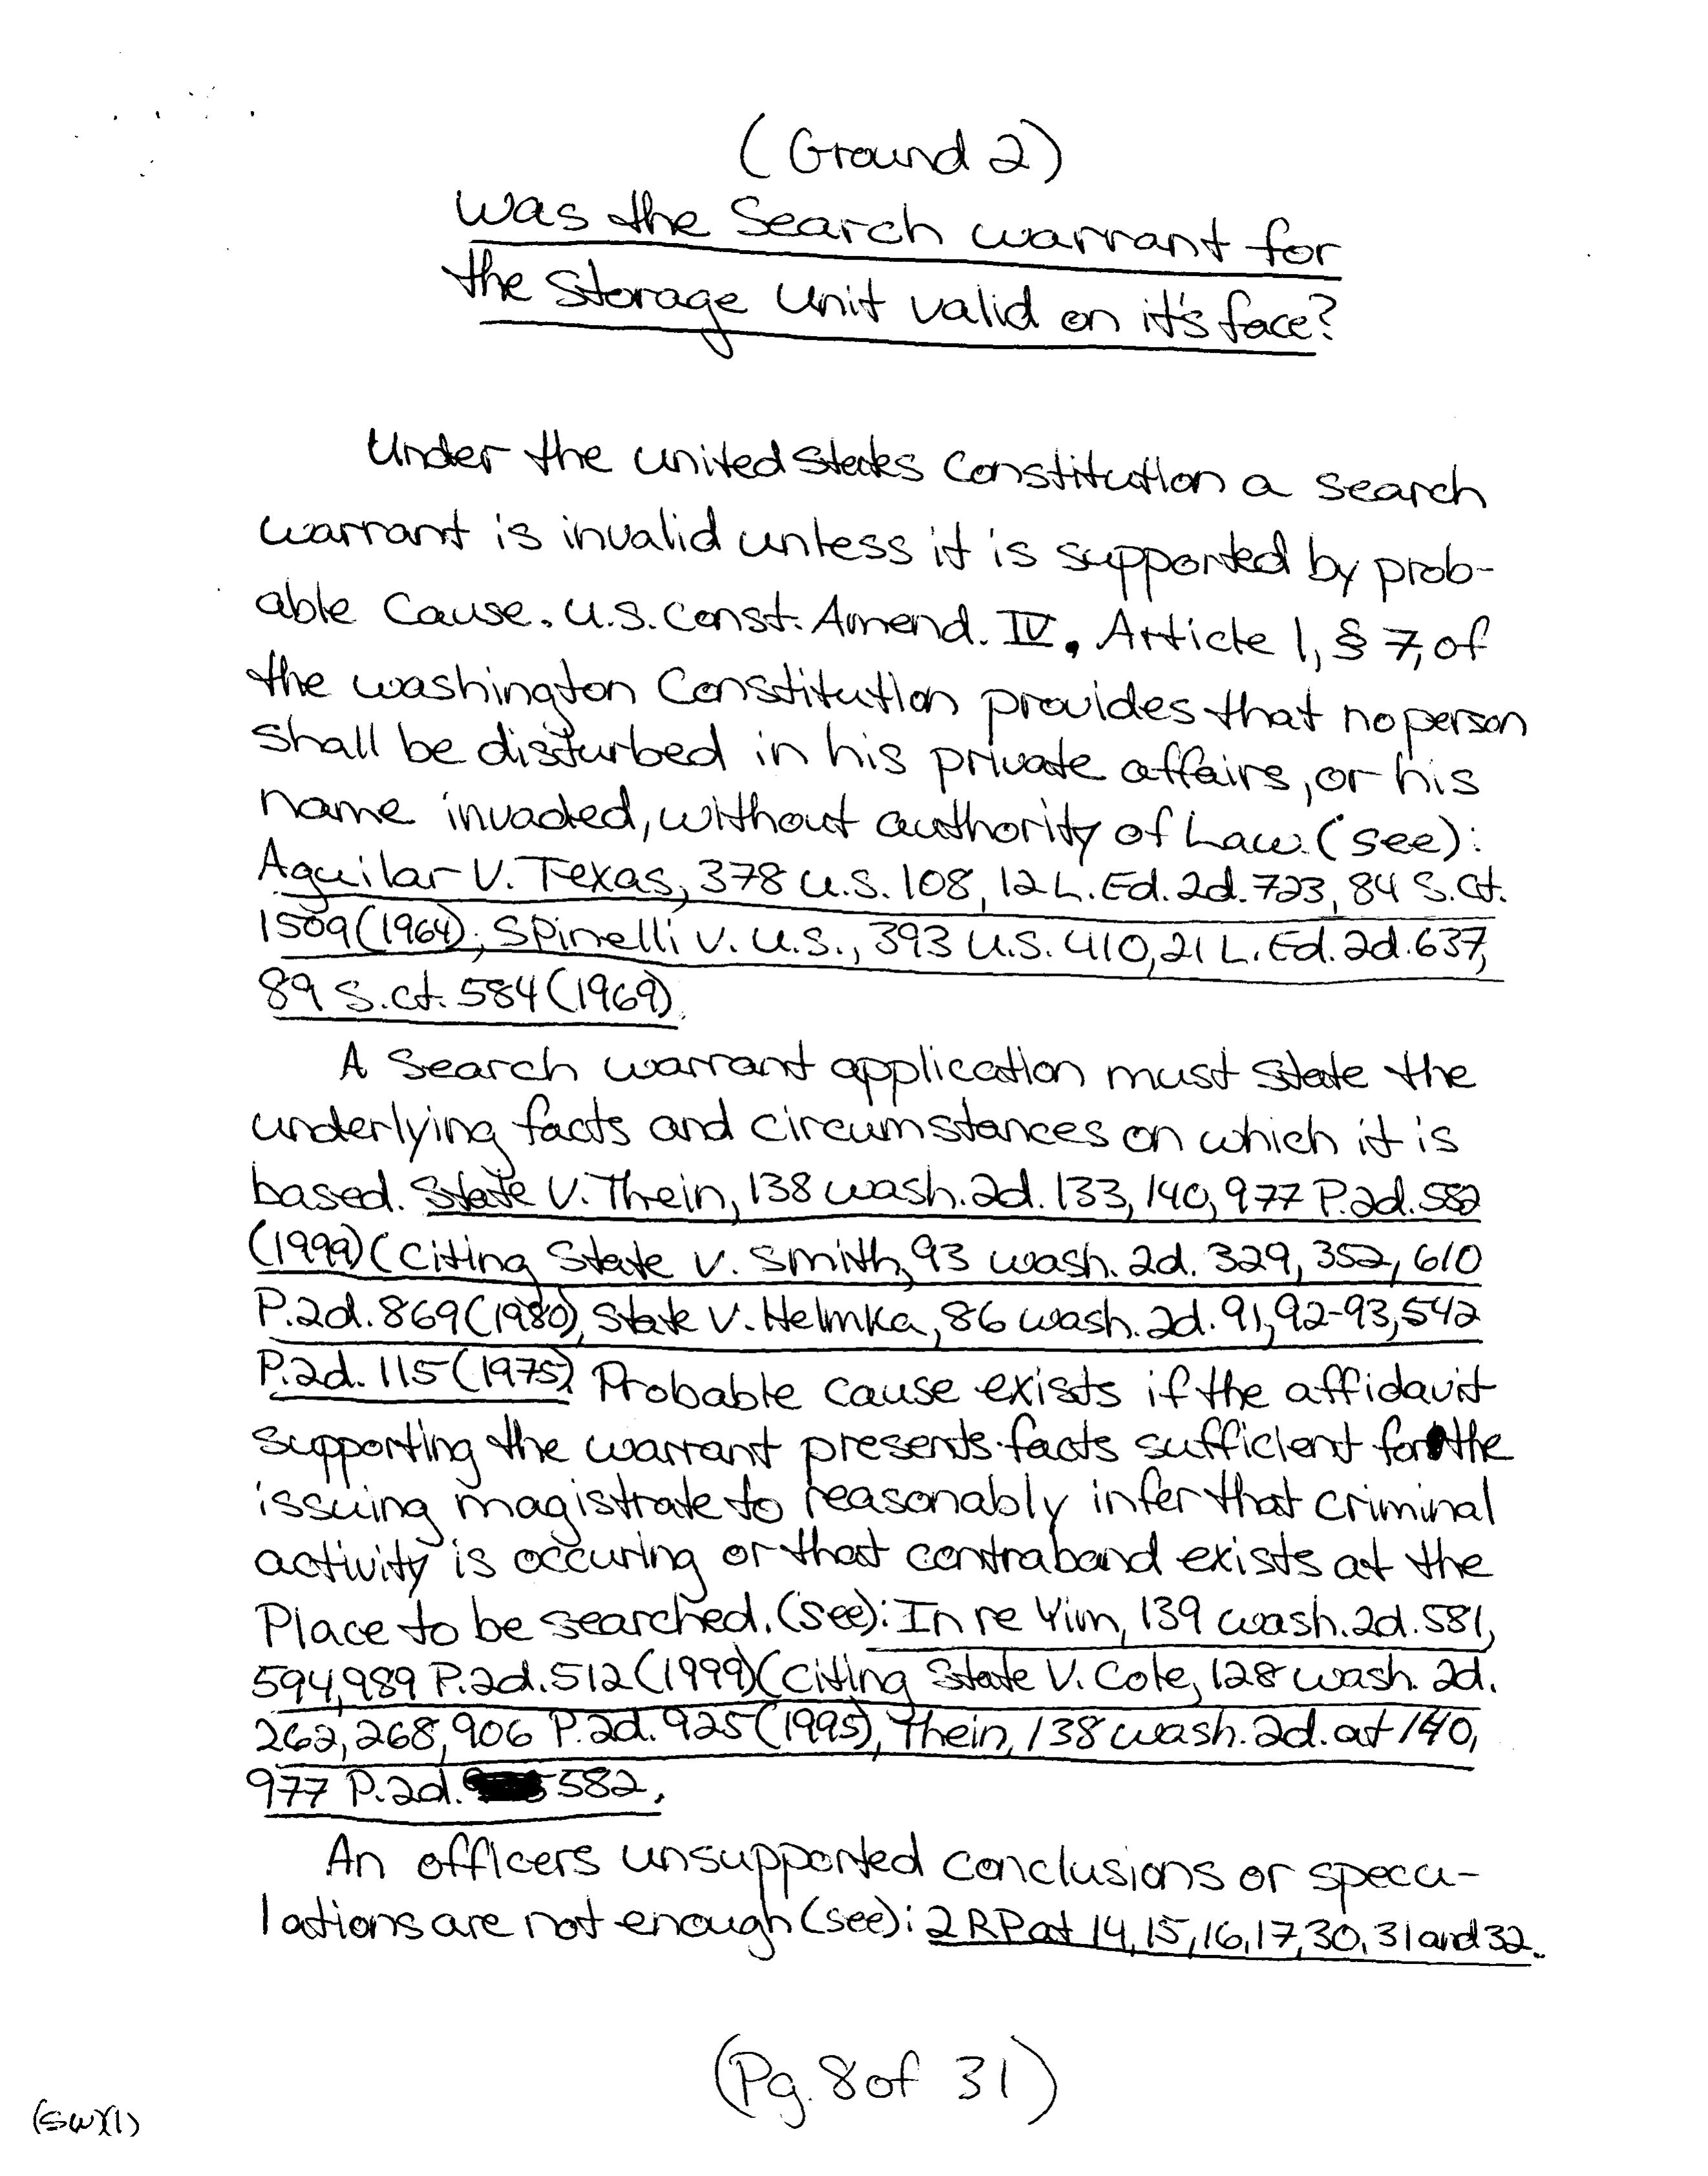 (Ground 2)
Was the Search warrant for
the Storage Unit valid on it's face?
Under the united States Constitution a search
warrant is invalid unless it is supported by prob-
able Cause. U.S. Const. Amend. IV. Article 1, § 7, of
the washington Constitution provides that no person
Shall be disturbed in his private affairs, or his
name invaded, without authority of Law. (see):
Aguilar V. Texas, 378 U.S. 108, 12 L. Ed. 2d. 723, 84 S.Ct.
1509 (1964); Spinelli v. U.S., 393 U.S. 410, 21 L. Ed. 2d. 637,
89 S.Ct. 584 (1969).
A Search warrant application must state the
underlying facts and circumstances on which it is
based. State V. Thein, 138 wash. 2d. 133, 140, 977 P.2d. 582
(1999) (Citing State v. Smith, 93 wash. 2d. 329, 352, 610
P.2d. 869 (1980), State v. Helmka, 86 wash. 2d. 91, 92-93, 542
P.2d. 115 (1975). Probable cause exists if the affidavit
supporting the warrant presents facts sufficient for the
issuing magistrate to reasonably infer that criminal
activity is occuring or that contraband exists at the
Place to be searched. (see): In re Yim, 139 wash. 2d. 581,
594, 989 P.2d. 512 (1999) (Citing State V. Cole, 128 wash. 2d.
262, 268, 906 P.2d. 925 (1995), Thein, 138 wash. 2d. at 140,
977 P.2d. 582.
An officers unsupported conclusions or specu-
lations are not enough (see): 2 RP at 14, 15, 16, 17, 30, 31 and 32.
(Pg. 8 of 31)
(SW)(1)